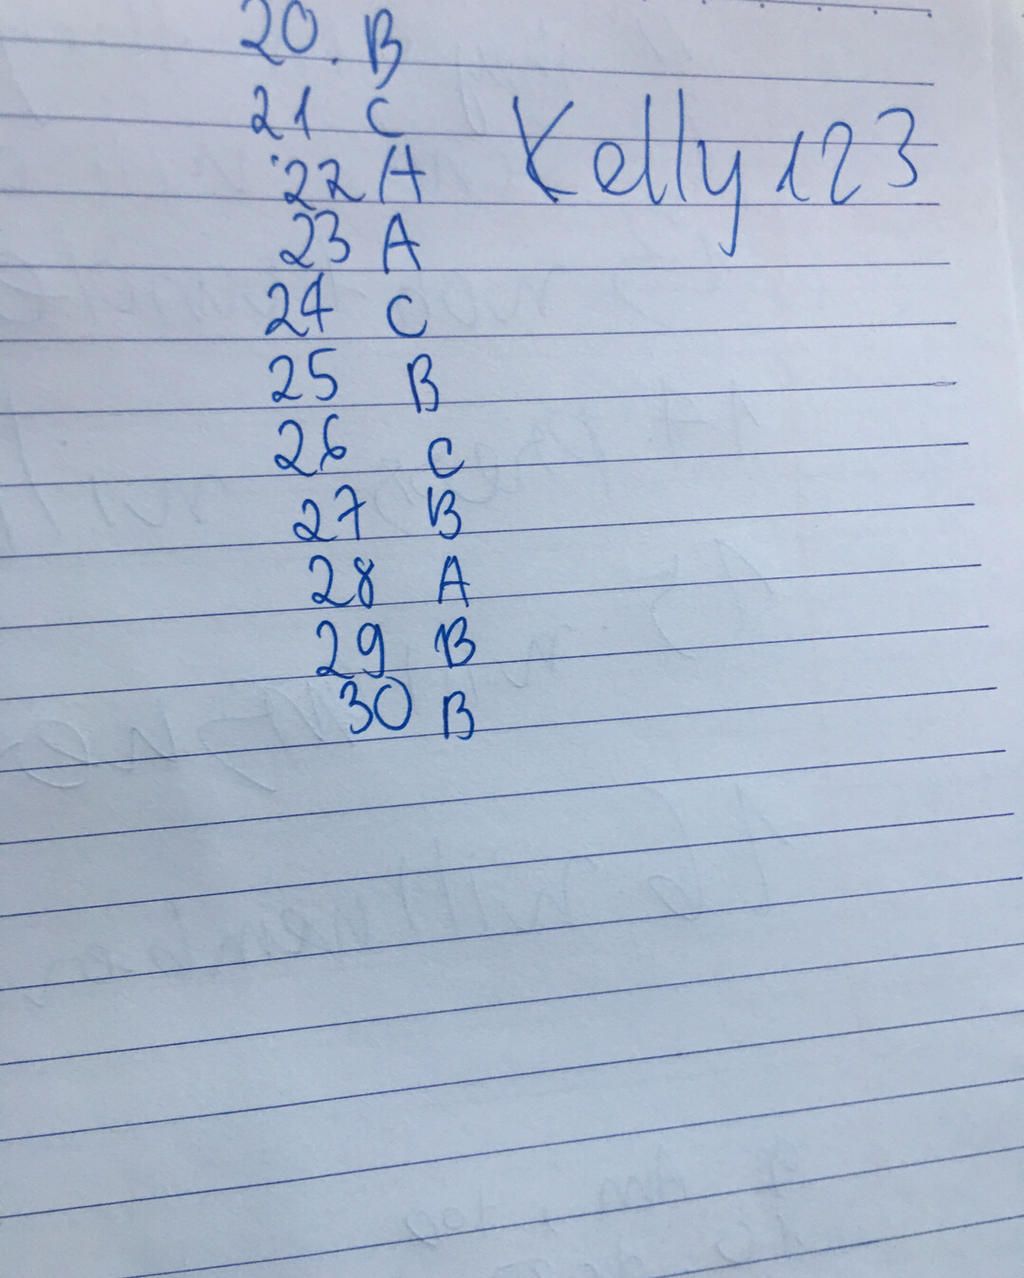 20. B
21 C
Kelly 123
22 A
23 A
24 C
25 B
26 C
27 B
28 A
29 B
30 B